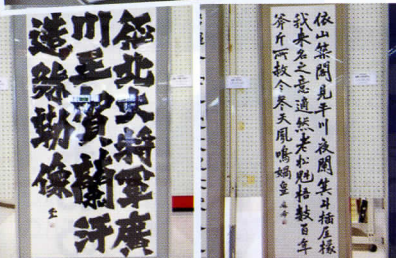 征北大将軍廣
川王賀蘭汗
造弥勒像
依山築閣見平川夜闌箕斗插屋椽
我来名之意適然老松魁梧數百年
斧斤所赦今参天風鳴媧皇